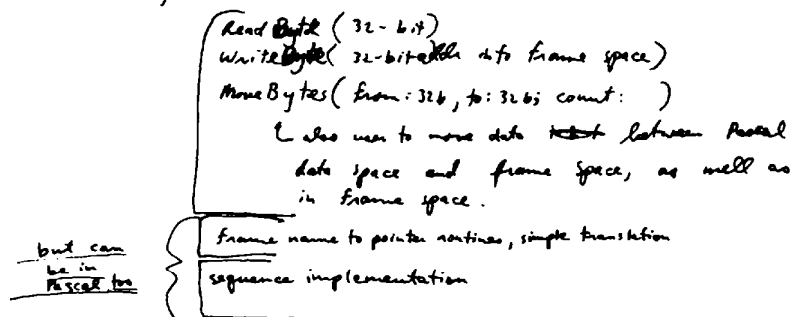 Read Byte (32-bit)
Write Byte (32-bit addr into frame space)
Move Bytes (from: 32b, to: 32b; count: )
also uses to move data between Pascal
data space and frame space, as well as
in frame space.
frame name to pointer routines, simple translation
but can
be in
Pascal too
sequence implementation